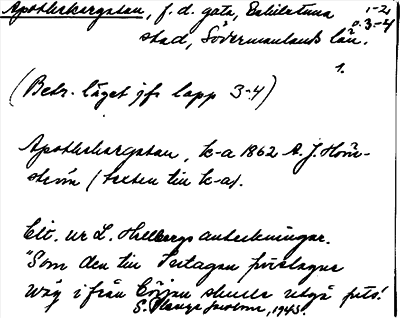 Apothekargatan, f.d. gata, Eskilstuna 1-2,
stad, Södermanlands län. o. 3-4
1.
(Betr. läget jfr lapp 3-4)
Apothekargatan, k-a 1862 A. J. Horn-
ström (texten till k-a).
Cit. ur L. Hellbergs anteckningar.
"Som den till Intagan föreslagne
väg ifrån Början skulle utgå från!
S. , 1943.